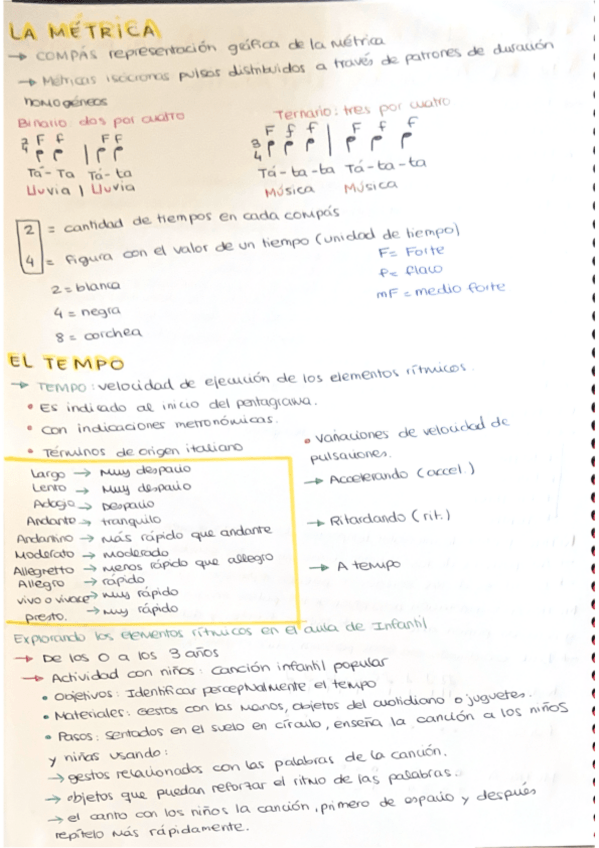 LA MÉTRICA
→ COMPÁS representación gráfica de la Métrica
→ Métricas isócronas pulsos distribuidos a través de patrones de duración
homogéneos
Binario: dos por cuatro
Ternario: tres por cuatro
2 F f F F
4
3 F f f F f f
4
Tá - Ta Tá - ta
Tá - ta - ta Tá - ta - ta
Lluvia | Lluvia
Música Música
2 = cantidad de tiempos en cada compás
4 = figura con el valor de un tiempo (unidad de tiempo)
2 = blanca
4 = negra
8 = corchea
F = Forte
f = flaco
mF = medio forte
EL TEMPO
→ TEMPO: velocidad de ejecución de los elementos rítmicos.
• Es indicado al inicio del pentagrama.
• Con indicaciones metronómicas.
• Términos de origen italiano
Largo → Muy despacio
Lento → Muy despacio
Adagio → Despacio
Andante → tranquilo
Andantino → más rápido que andante
Moderato → moderado
Allegretto → menos rápido que allegro
Allegro → rápido
vivo o vivace → muy rápido
presto. → muy rápido
• Variaciones de velocidad de
pulsaciones.
→ Accelerando (accel.)
→ Ritardando (rit.)
→ A tempo
Explorando los elementos rítmicos en el aula de Infantil
→ De los 0 a los 3 años
→ Actividad con niños: Canción infantil popular
• Objetivos: Identificar perceptualmente el tempo
• Materiales: Gestos con las manos, objetos del cuotidiano o juguetes.
• Pasos: sentados en el suelo en círculo, enseña la canción a los niños
y niñas usando:
→ gestos relacionados con las palabras de la canción.
→ objetos que puedan reforzar el ritmo de las palabras.
→ el canto con los niños la canción, primero de espacio y después
repítelo más rápidamente.